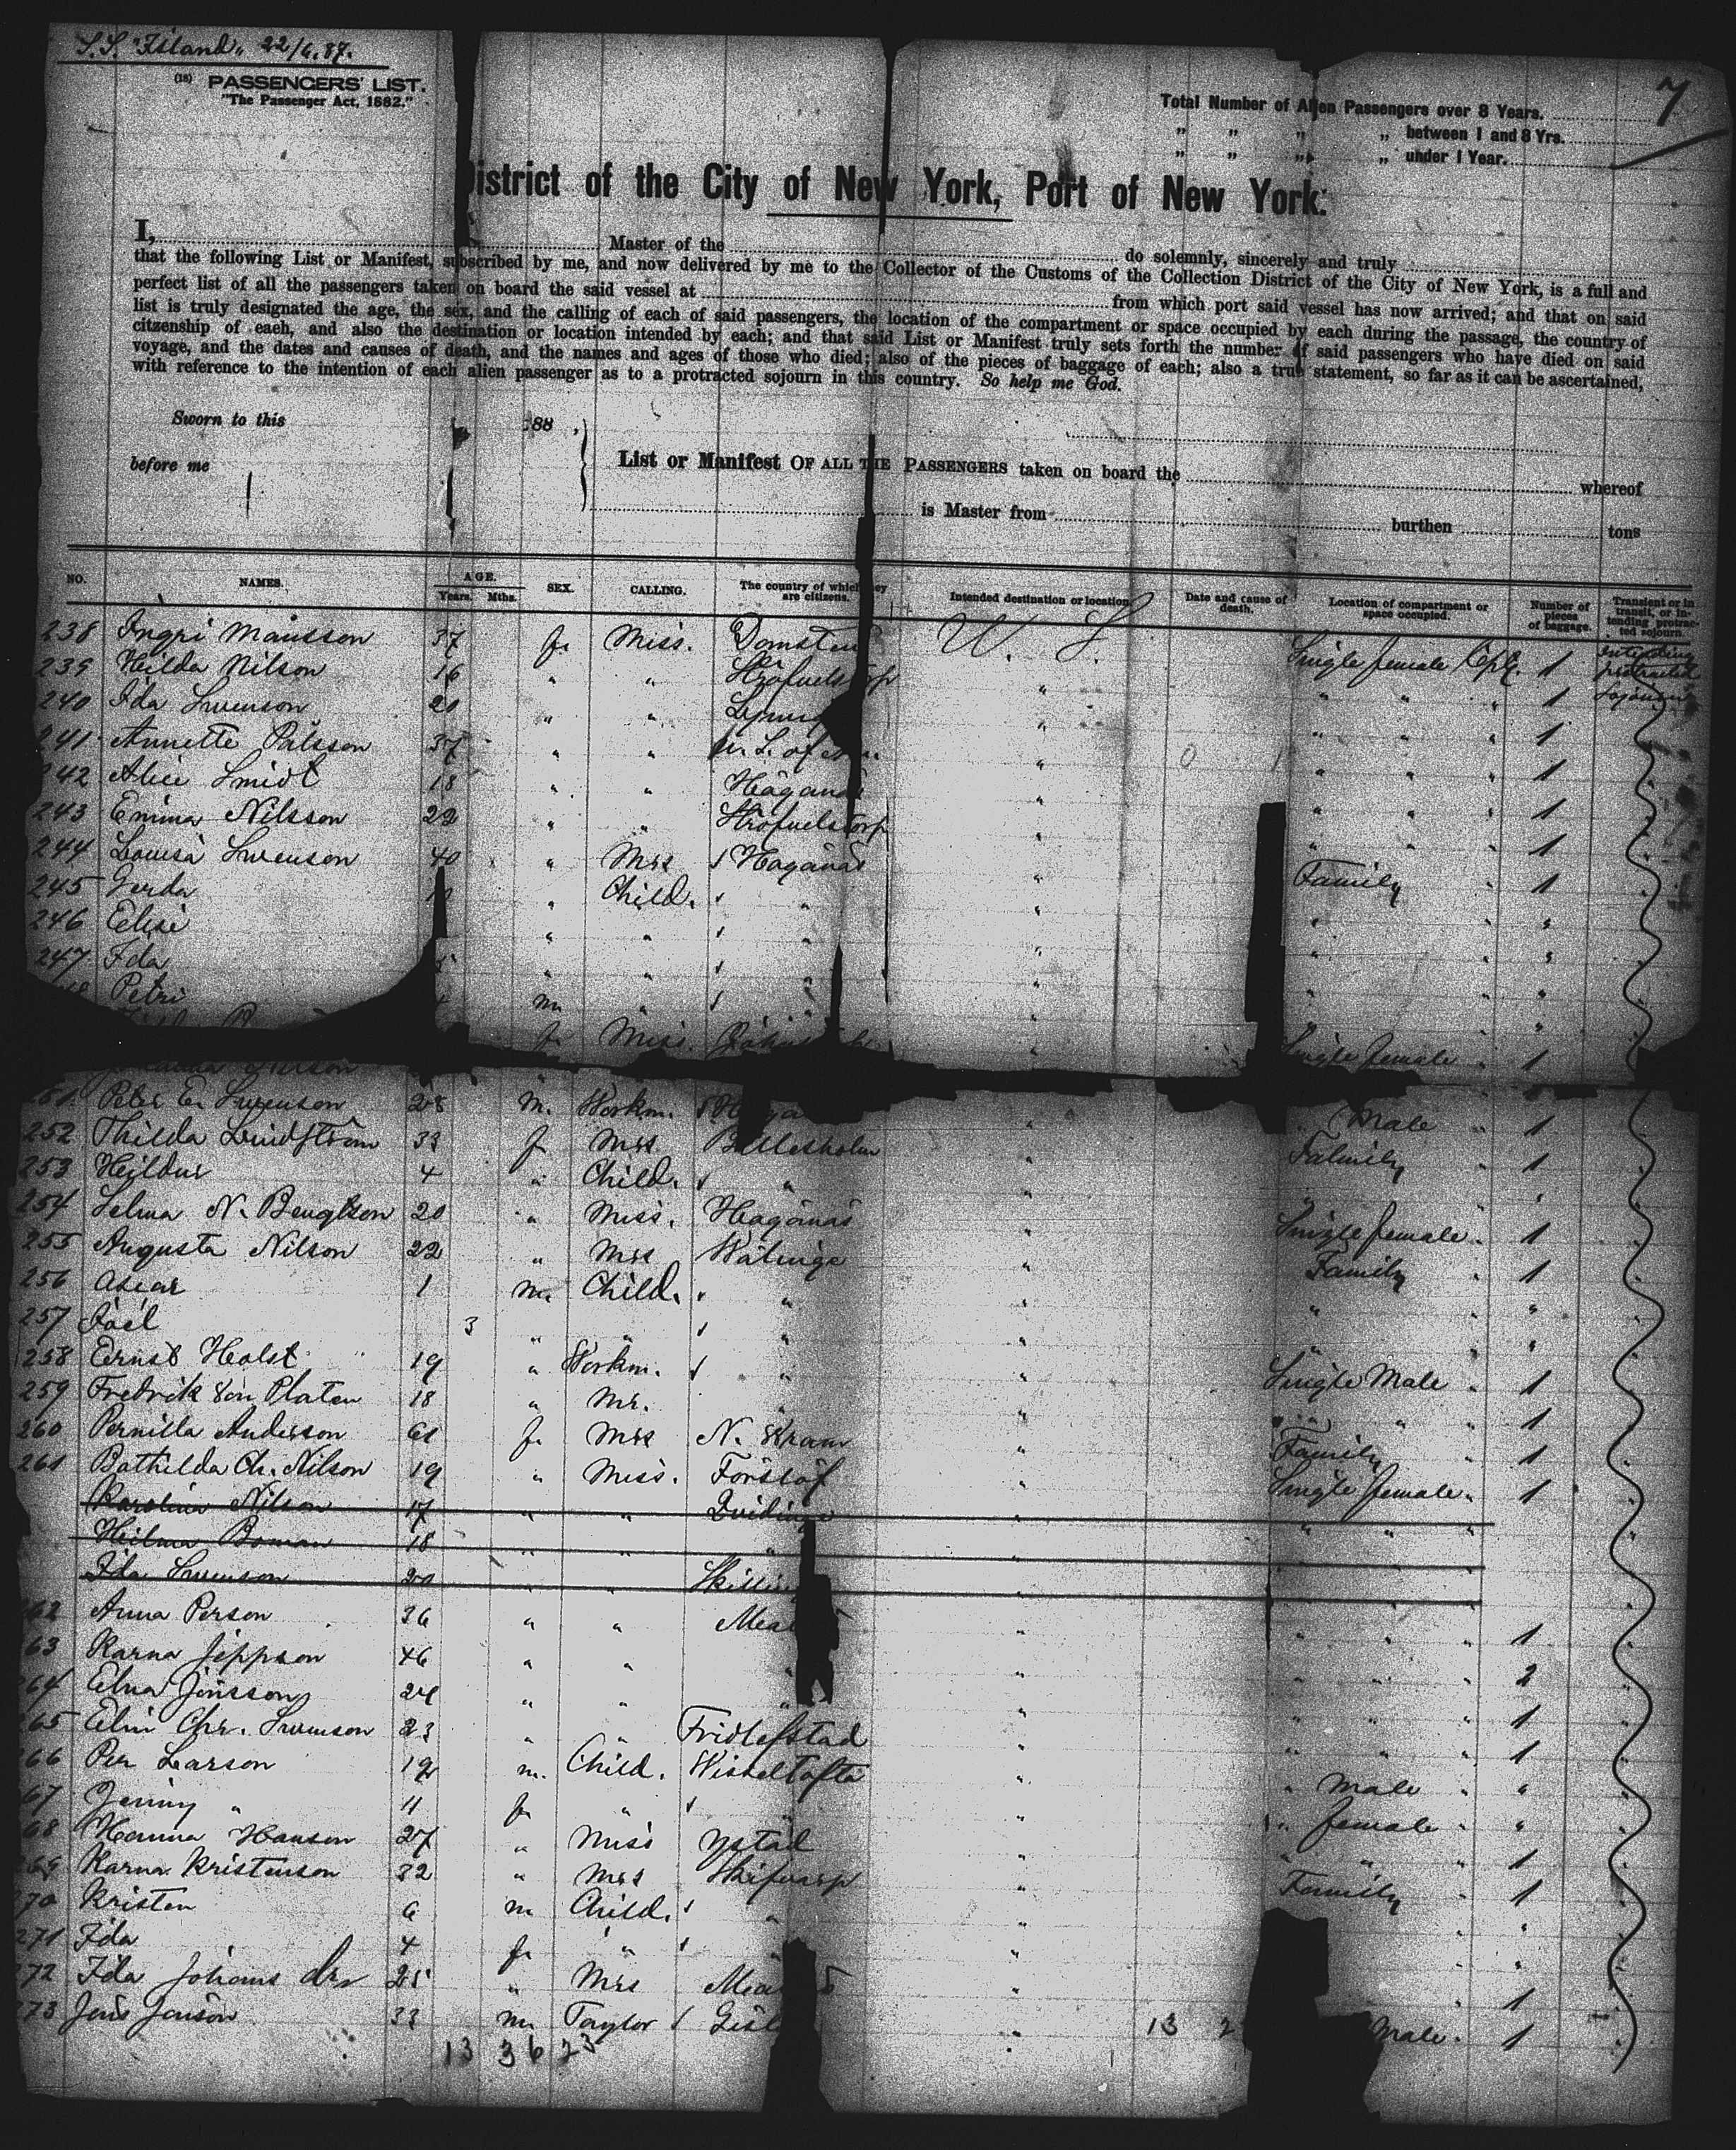 S.S. "Island" 22/6.87.
7
(18) PASSENGERS' LIST.
"The Passenger Act, 1882."
Total Number of Alien Passengers over 8 Years.
" " " " between 1 and 8 Yrs.
" " " " under 1 Year.
District of the City of New York, Port of New York.
I, Master of the do solemnly, sincerely and truly
that the following List or Manifest, subscribed by me, and now delivered by me to the Collector of the Customs of the Collection District of the City of New York, is a full and
perfect list of all the passengers taken on board the said vessel at from which port said vessel has now arrived; and that on said
list is truly designated the age, the sex, and the calling of each of said passengers, the location of the compartment or space occupied by each during the passage, the country of
citzenship of each, and also the destination or location intended by each; and that said List or Manifest truly sets forth the number of said passengers who have died on said
voyage, and the dates and causes of death, and the names and ages of those who died; also of the pieces of baggage of each; also a true statement, so far as it can be ascertained,
with reference to the intention of each alien passenger as to a protracted sojourn in this country. So help me God.
Sworn to this 188 .
before me
List or Manifest OF ALL THE PASSENGERS taken on board the whereof
is Master from burthen tons
NO. NAMES. AGE. Years. Mths. SEX. CALLING. The country of which they are citizens. Intended destination or location. Date and cause of death. Location of compartment or space occupied. Number of pieces of baggage. Transient or in transit, or intending protracted sojourn.
238 Ingri Mansson 37 f. Miss. Domsten U. S. Single female Cpt. 1 intending protracted sojourn
239 Hilda Nilson 16 " " " " " " 1
240 Ida Swenson 20 " " " " " " 1
241 Annette Pålsson 37 " " " " " " 1
242 Alice Smidt 18 " " Höganäs " " " " 1
243 Emma Nilsson 22 " " " " " " 1
244 Louisa Swenson 40 " Mrs Höganäs " Family " 1
245 Gerda " Child. " " " " "
246 Elise " " " " " " "
247 Ida 5 " " " " " " "
Petri m. " " " " " "
f. Miss. " Single female " 1
Nilson
251 Peter E. Swenson 28 m. Workm. " Male " 1
252 Thilda Lindström 33 f. Mrs Billesholm " Family " 1
253 Hildur 4 " Child. " " " " "
254 Selma N. Bengtson 20 " Miss. Höganäs " Single female " 1
255 Augusta Nilson 22 " Mrs Wälinge " Family " 1
256 Oscar 1 m. Child. " " " " "
257 Joel 3 " " " " " " "
258 Ernst Holst 19 " Workm. " " Single Male " 1
259 Fredrik von Platen 18 " Mr. " " " " " 1
260 Pernilla Anderson 61 f. Mrs N. Wram " Family " 1
261 Bothilda Ch. Nilson 19 " Miss. Förslöf " Single female " 1
Karolina Nilson 17 " " Qvidinge " " " "
Hilma Boman 18 " " " " " " "
Ida Swenson 20 " " " " " "
262 Anna Person 36 " " " " " " 1
263 Karna Jeppson 46 " " " " " " " 2
264 Elna Jönsson 24 " " " " " " " 1
265 Elin Chr. Swenson 23 " " Fridlefstad " " " " 1
266 Per Larson 12 m. Child. Wisseltofta " " Male " "
267 Jenny " 11 f. " " " " female " "
268 Hanna Hanson 27 " Miss Ystad " " " " 1
269 Karna Kristenson 32 " Mrs Skifvarp " Family " 1
270 Kristen 6 m Child. " " "
271 Ida 4 f. " " " " "
272 Ida Johans dr 25 " Mrs " 1
273 Jöns Jönson 33 m. Taylor " Male. 1
13 36 23
13 2